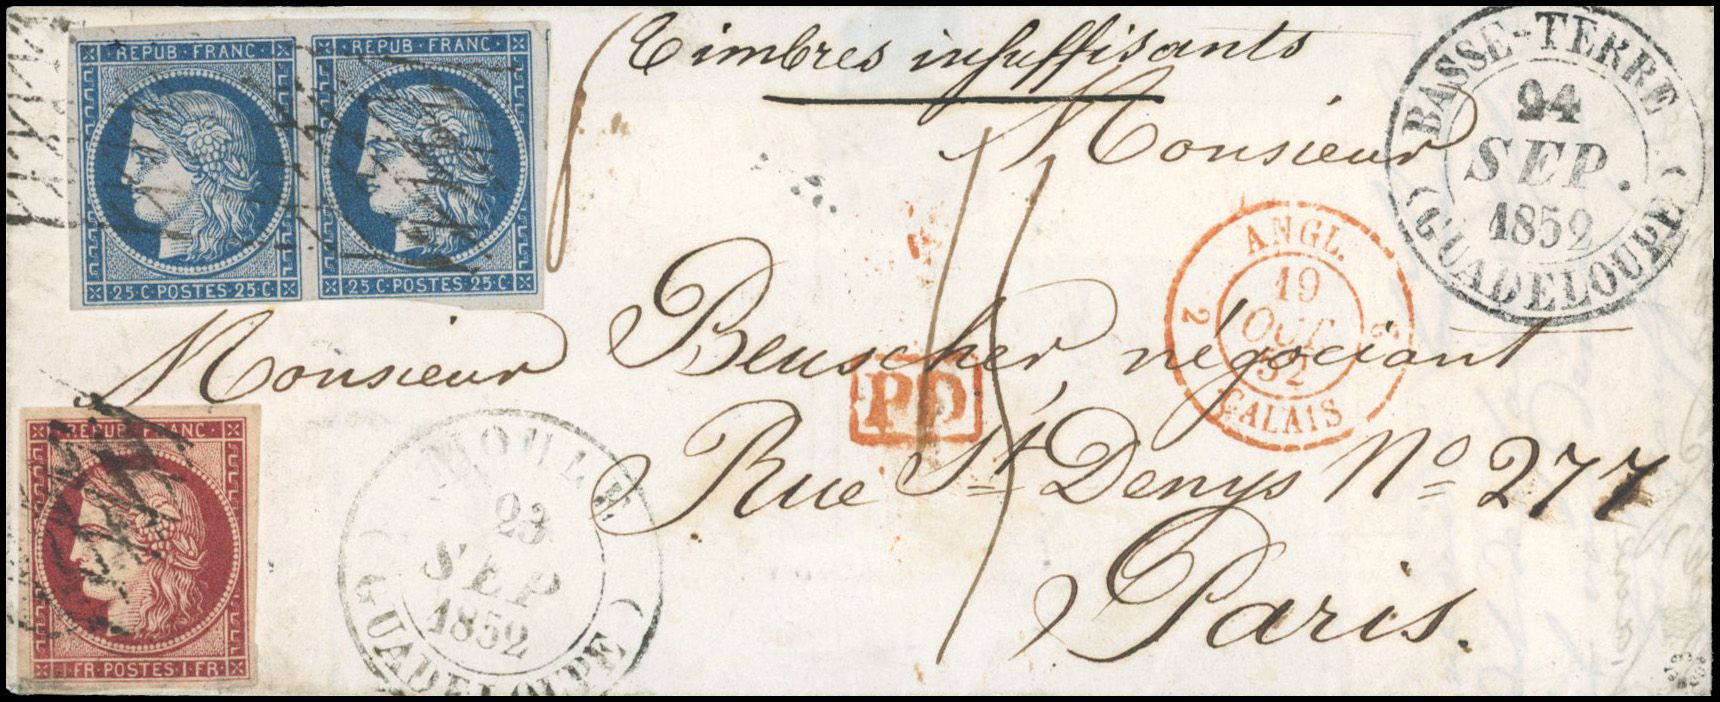 REPUB·FRANC·
25·C·POSTES·25·C·
REPUB·FRANC·
25·C·POSTES·25·C·
Timbres insuffisants
BASSE-TERRE
24
SEP.
1852
(GUADELOUPE)
Monsieur
ANGL.
2 19 2
OCT.
52
CALAIS
Monsieur Beuscher, négociant
PD
Rue St Denys No 277
Paris.
REPUB·FRANC·
1·FR·POSTES·1·FR·
MOULE
23
SEP
1852
(GUADELOUPE)